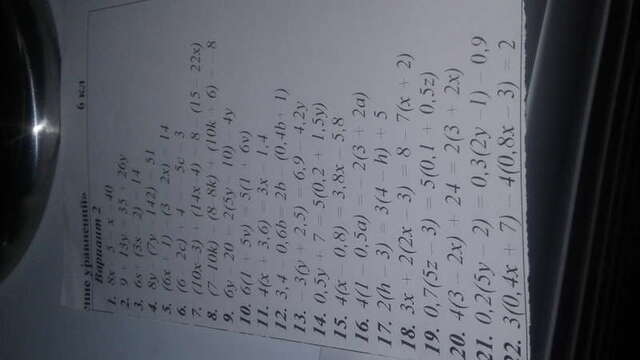 ние уравнений» 6 кл
Вариант 2
1. 8x – 5 = x – 40
2. 9 + 13y = 35 + 26y
3. 6x + (3x – 2) = 14
4. 8y – (7y – 142) = 51
5. (6x + 1) – (3 – 2x) = 14
6. (6 – 2c) + 4 = – 5c – 3
7. (10x–3) + (14x–4) = 8 – (15 – 22x)
8. (7–10k) – (8–8k) + (10k + 6) = – 8
9. 6y – 20 = 2(5y – 10) – 4y
10. 6(1 + 5v) = 5(1 + 6v)
11. 4(x + 3,6) = 3x – 1,4
12. 3,4 – 0,6b = 2b – (0,4b + 1)
13. – 3(y + 2,5) = 6,9 – 4,2y
14. 0,5y + 7 = 5(0,2 + 1,5y)
15. 4(x – 0,8) = 3,8x – 5,8
16. 4(1 – 0,5a) = – 2(3 + 2a)
17. 2(h – 3) = 3(4 – h) + 5
18. 3x + 2(2x – 3) = 8 – 7(x + 2)
19. 0,7(5z – 3) = 5(0,1 + 0,5z)
20. 4(3 – 2x) + 24 = 2(3 + 2x)
21. 0,2(5y – 2) = 0,3(2y –1) – 0,9
22. 3(0,4x + 7) – 4(0,8x – 3) = 2